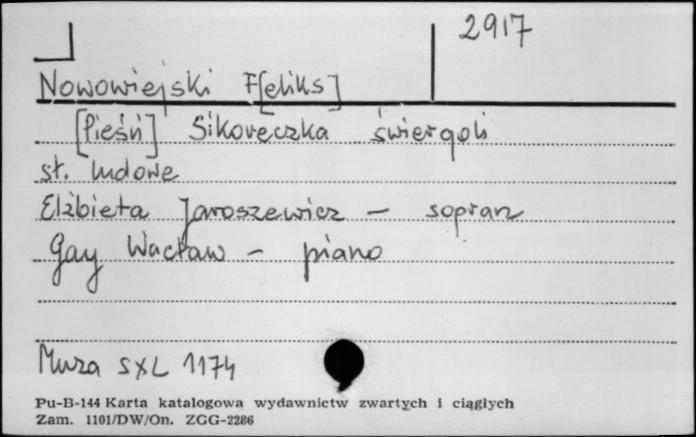 2917
Nowowiejski F[eliks]
[Pieśń] Sikoreczka świergoli
sł. ludowe
Elżbieta Jaroszewicz – sopran
Gay Wacław – piano
Muza SXL 1174
Pu-B-144 Karta katalogowa wydawnictw zwartych i ciągłych
Zam. 1101/DW/On. ZGG-2286